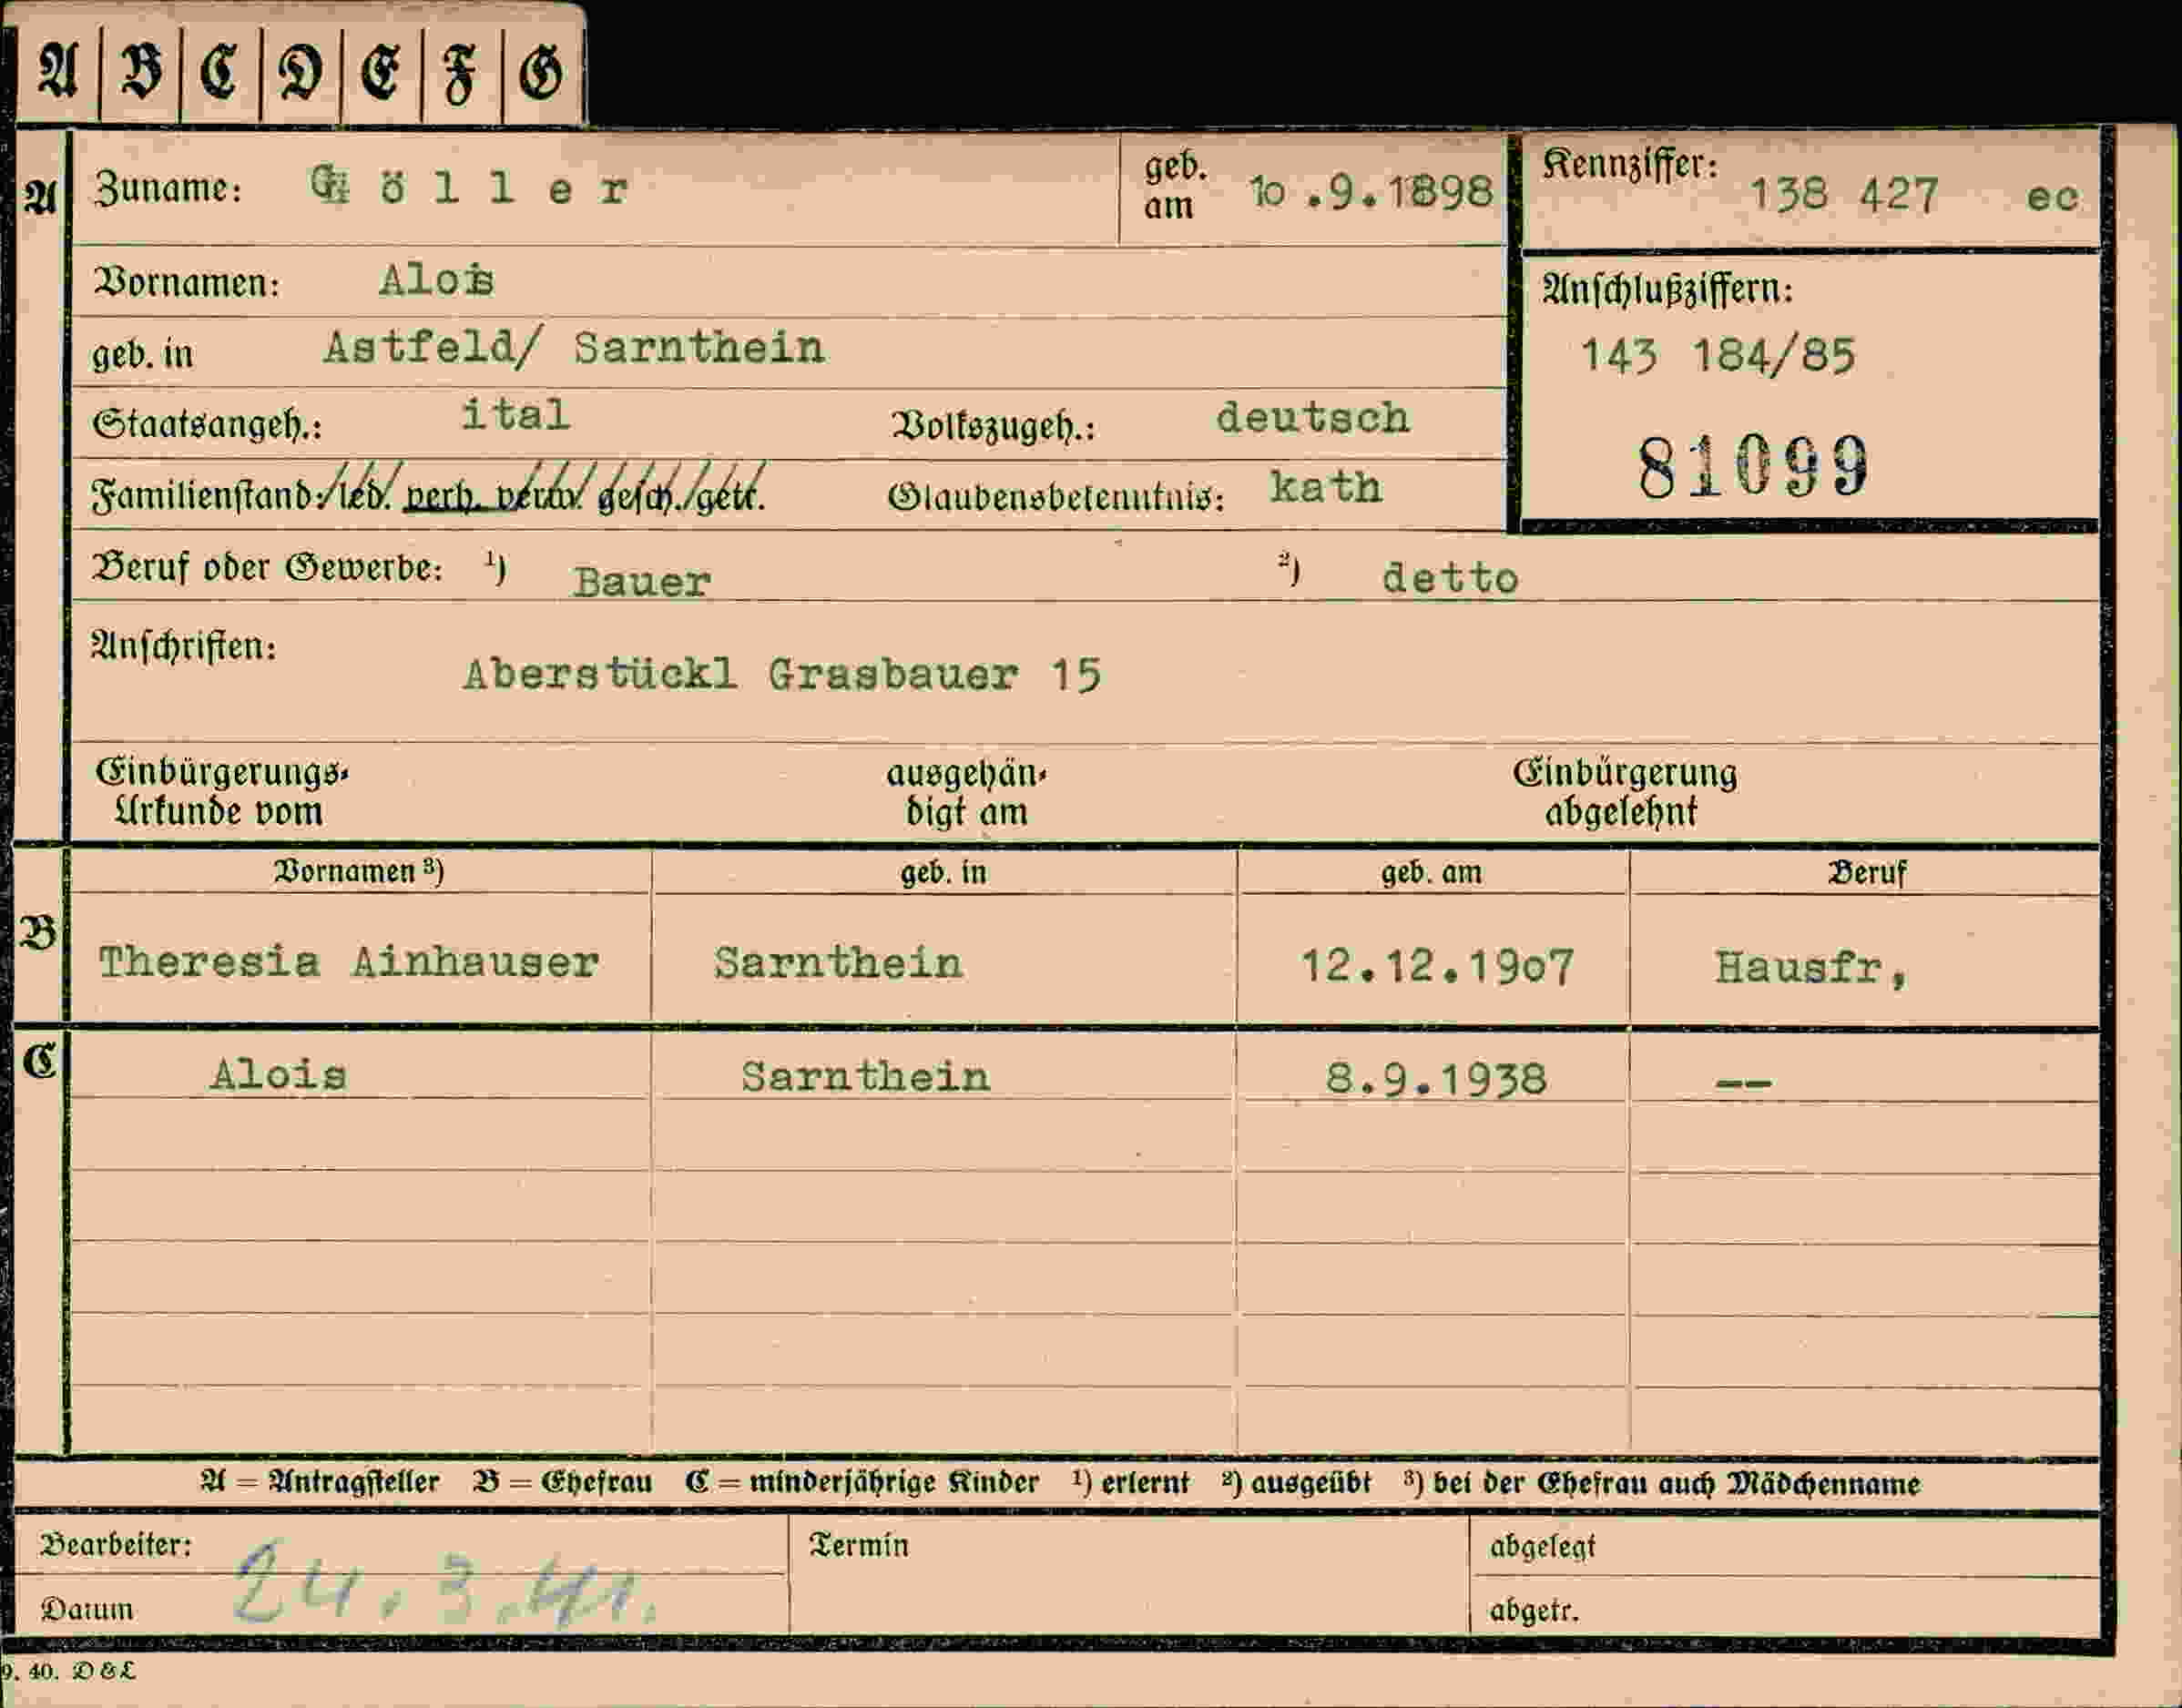 A B C D E F G
A Zuname: G ö l l e r geb. am 10.9.1898 Kennziffer: 138 427 ec
Vornamen: Alois Anschlußziffern:
geb. in Astfeld/ Sarnthein 143 184/85
Staatsangeh.: ital Volkszugeh.: deutsch
81099
Familienstand: led. verh. verw. gesch. getr. Glaubensbekenntnis: kath
Beruf oder Gewerbe: ¹) Bauer ²) detto
Anschriften:
Aberstückl Grasbauer 15
Einbürgerungs- ausgehän- Einbürgerung
Urkunde vom digt am abgelehnt
Vornamen ³) geb. in geb. am Beruf
B Theresia Ainhauser Sarnthein 12.12.1907 Hausfr,
C Alois Sarnthein 8.9.1938 --
A = Antragsteller B = Ehefrau C = minderjährige Kinder ¹) erlernt ²) ausgeübt ³) bei der Ehefrau auch Mädchenname
Bearbeiter: Termin abgelegt
24.3.41.
Datum abgetr.
9. 40. D & L